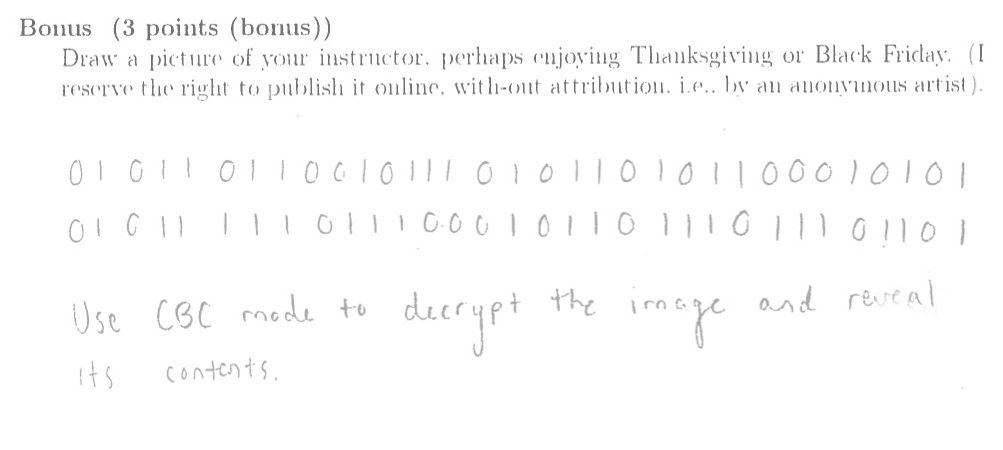 Bonus (3 points (bonus))
Draw a picture of your instructor, perhaps enjoying Thanksgiving or Black Friday. (I
reserve the right to publish it online, with-out attribution, i.e., by an anonymous artist).
01 011 011 0010111 010110101100010101
01 011 111 0111000101101110111 01101
Use CBC mode to decrypt the image and reveal
its contents.